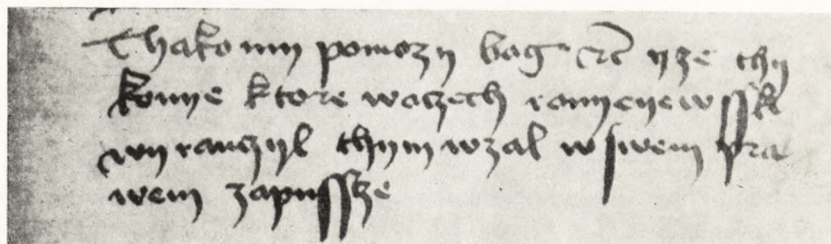 Thako my pomozy bog etc yze thy
konye ktore waczech
wyranczyl thym wzal w swem pra
wem zapussče